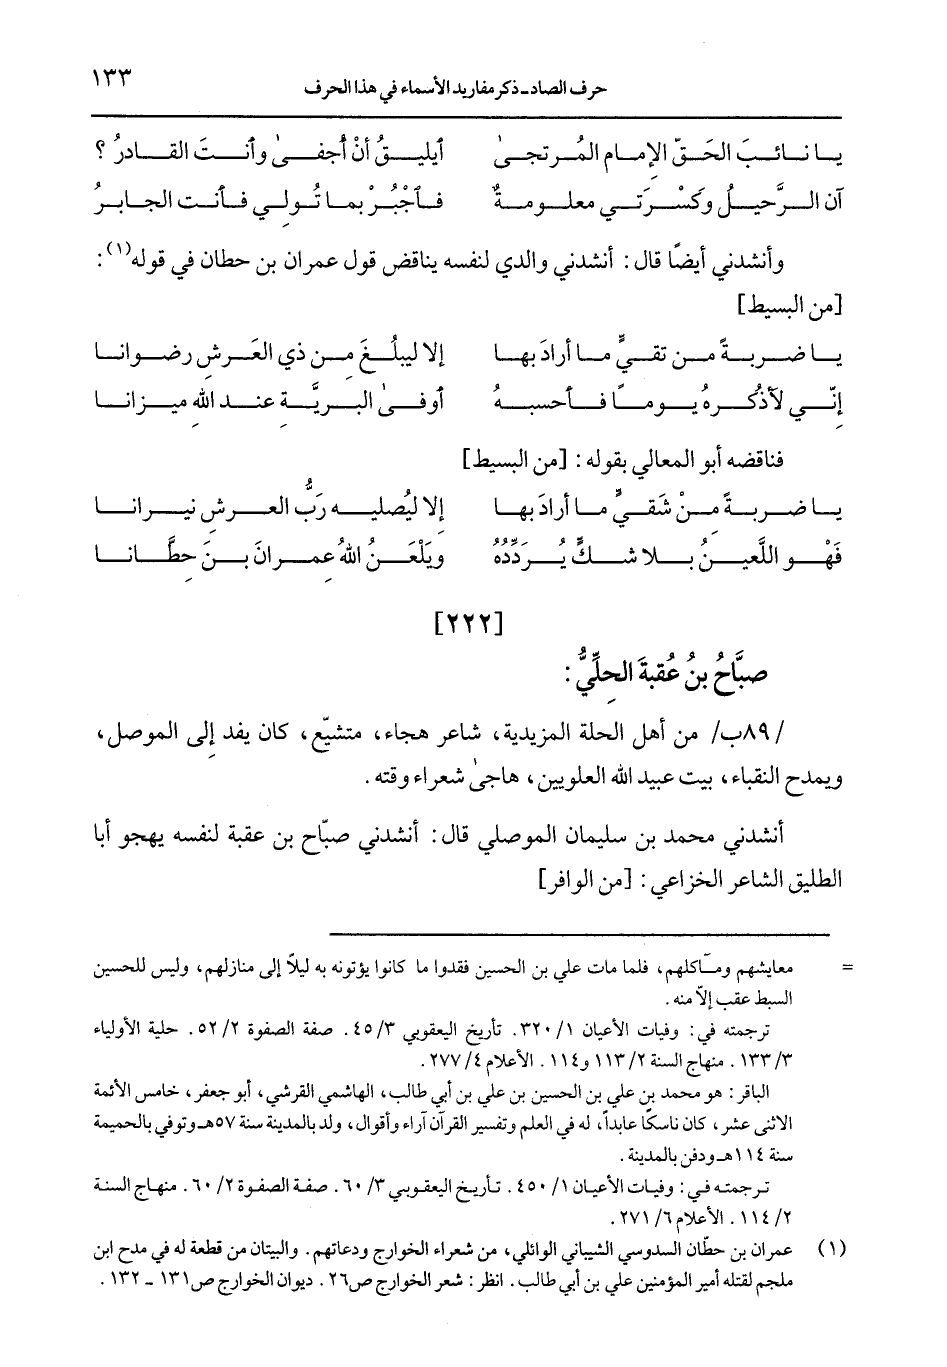 حرف الصاد ـ ذكر مفاريد الأسماء في هذا الحرف ١٣٣
يا نائبَ الحَقّ الإمام المُرتجىٰ أيليقُ أنْ أُجفىٰ وأنتَ القادرُ ؟
آن الرَّحيلُ وكَسْرَتي معلومةٌ فأجْبُرْ بما تُولي فأنت الجابرُ
وأنشدني أيضًا قال : أنشدني والدي لنفسه يناقض قول عمران بن حطان في قوله(١) :
[من البسيط]
يا ضربةً من تقيٍّ ما أرادَ بها إلا ليبلُغَ من ذي العَرشِ رضوانا
إنّي لأذكُرهُ يومًا فأحسبهُ أوفىٰ البريَّةِ عندَ اللهِ ميزانا
فناقضه أبو المعالي بقوله : [من البسيط]
يا ضربةً مِنْ شَقيٍّ ما أرادَ بها إلا ليُصليه رَبُّ العرشِ نيرانا
فَهْو اللَّعينُ بلا شكٍّ يُردِّدُهُ ويَلْعَنُ اللهُ عمرانَ بنَ حِطَّانا
[٢٢٢]
صبَّاحُ بنُ عُقبةَ الحلِّيُّ :
/٨٩ب/ من أهل الحلة المزيدية، شاعر هجاء، متشيّع، كان يفد إلى الموصل،
ويمدح النقباء، بيت عبيد الله العلويين، هاجىٰ شعراء وقته .
أنشدني محمد بن سليمان الموصلي قال : أنشدني صبّاح بن عقبة لنفسه يهجو أبا
الطليق الشاعر الخزاعي : [من الوافر]
= معايشهم ومآكلهم، فلما مات علي بن الحسين فقدوا ما كانوا يؤتونه به ليلًا إلى منازلهم، وليس للحسين
السبط عقب إلّا منه .
ترجمته في : وفيات الأعيان ١/ ٣٢٠. تأريخ اليعقوبي ٣/ ٤٥ . صفة الصفوة ٢/ ٥٢ . حلية الأولياء
٣/ ١٣٣ . منهاج السنة ٢/ ١١٣ و١١٤ . الأعلام ٤/ ٢٧٧ .
الباقر : هو محمد بن علي بن الحسين بن علي بن أبي طالب، الهاشمي القرشي، أبو جعفر، خامس الأئمة
الاثنى عشر، كان ناسكًا عابداً، له في العلم وتفسير القرآن آراء وأقوال، ولد بالمدينة سنة ٥٧هـ وتوفي بالحميمة
سنة ١١٤هـ ودفن بالمدينة .
ترجمته في : وفيات الأعيان ١/ ٤٥٠ . تأريخ اليعقوبي ٣/ ٦٠ . صفة الصفوة ٢/ ٦٠ . منهاج السنة
٢/ ١١٤ . الأعلام ٦/ ٢٧١ .
(١) عمران بن حطّان السدوسي الشيباني الوائلي، من شعراء الخوارج ودعاتهم. والبيتان من قطعة له في مدح ابن
ملجم لقتله أمير المؤمنين علي بن أبي طالب. انظر : شعر الخوارج ص٢٦ . ديوان الخوارج ص١٣١ - ١٣٢ .